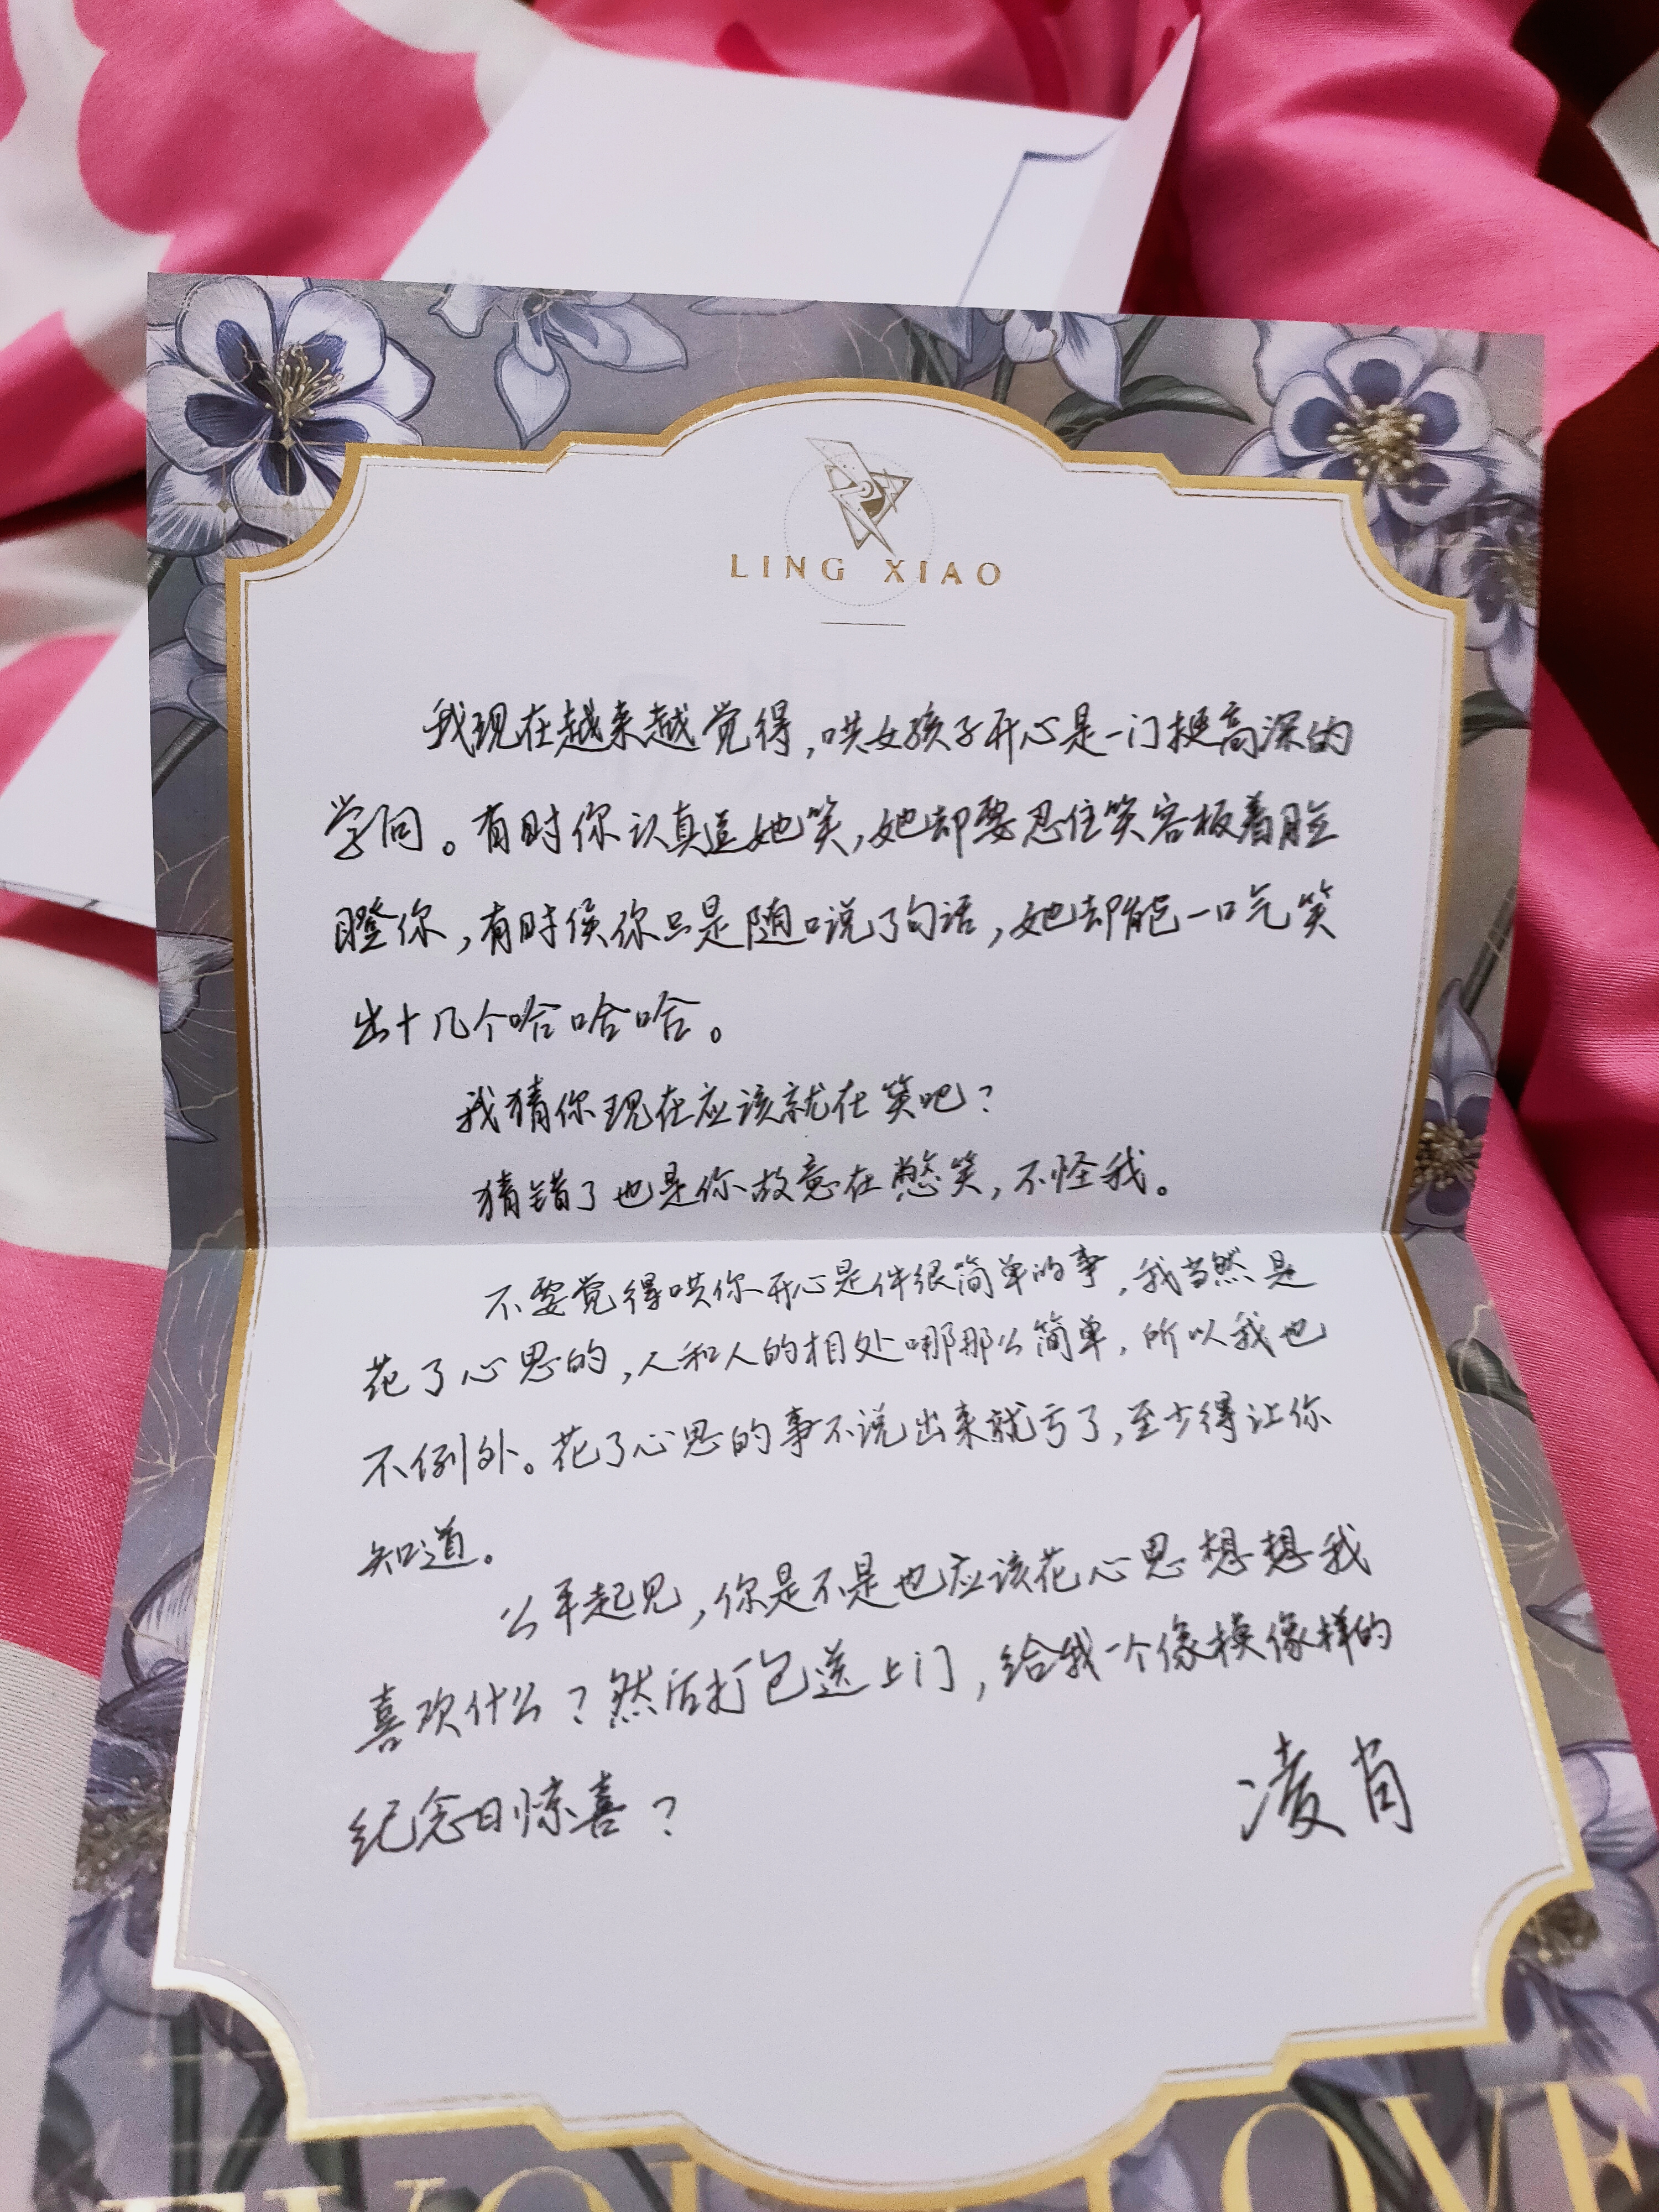 LING XIAO
我现在越来越觉得,哄女孩子开心是一门挺高深的
学问。有时你认真逗她笑,她却要忍住笑容板着脸
瞪你,有时候你只是随口说了句话,她却能一口气笑
出十几个哈哈哈。
我猜你现在应该就在笑吧?
猜错了也是你故意在憋笑,不怪我。
不要觉得哄你开心是件很简单的事,我当然是
花了心思的,人和人的相处哪那么简单,所以我也
不例外。花了心思的事不说出来就亏了,至少得让你
知道。
公平起见,你是不是也应该花心思想想我
喜欢什么?然后打包送上门,给我一个像模像样的
纪念日惊喜?
凌肖
LOVE